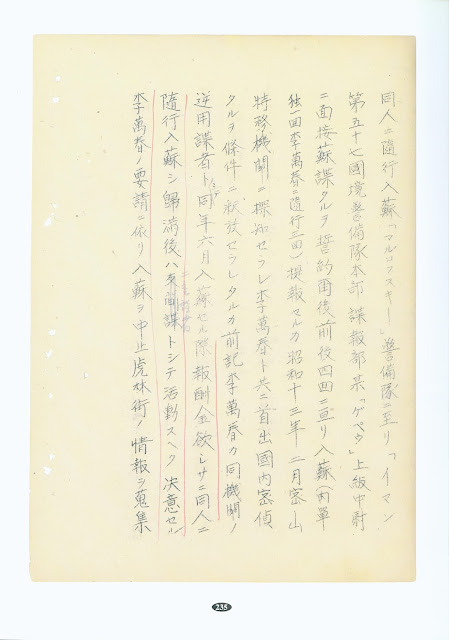 同人ニ隨行入蘇「マルコフスキー」警備隊ニ至リ「イマン
第五十七國境警備隊本部諜報部某「ゲペウ」上級中尉
ニ面接蘇諜タルヲ誓約爾後前後四回ニ亘リ入蘇(內單
獨一回李萬春ニ隨行三回)提報中ノ昭和十三年二月密山
特務機關ニ探知セラレ李萬春ト共ニ首出國內密偵
タルヲ條件ニ釈放セラレタルカ前記李萬春カ同機關ノ
逆用諜者トシテ同年六月入蘇セル際報酬金欲シサニ同人ニ
隨行入蘇シ歸滿後ハ諜トシテ活動スヘク決意セル
李萬春ノ要請ニ依リ入蘇ヲ中止虎林街ノ情報ヲ蒐集
235